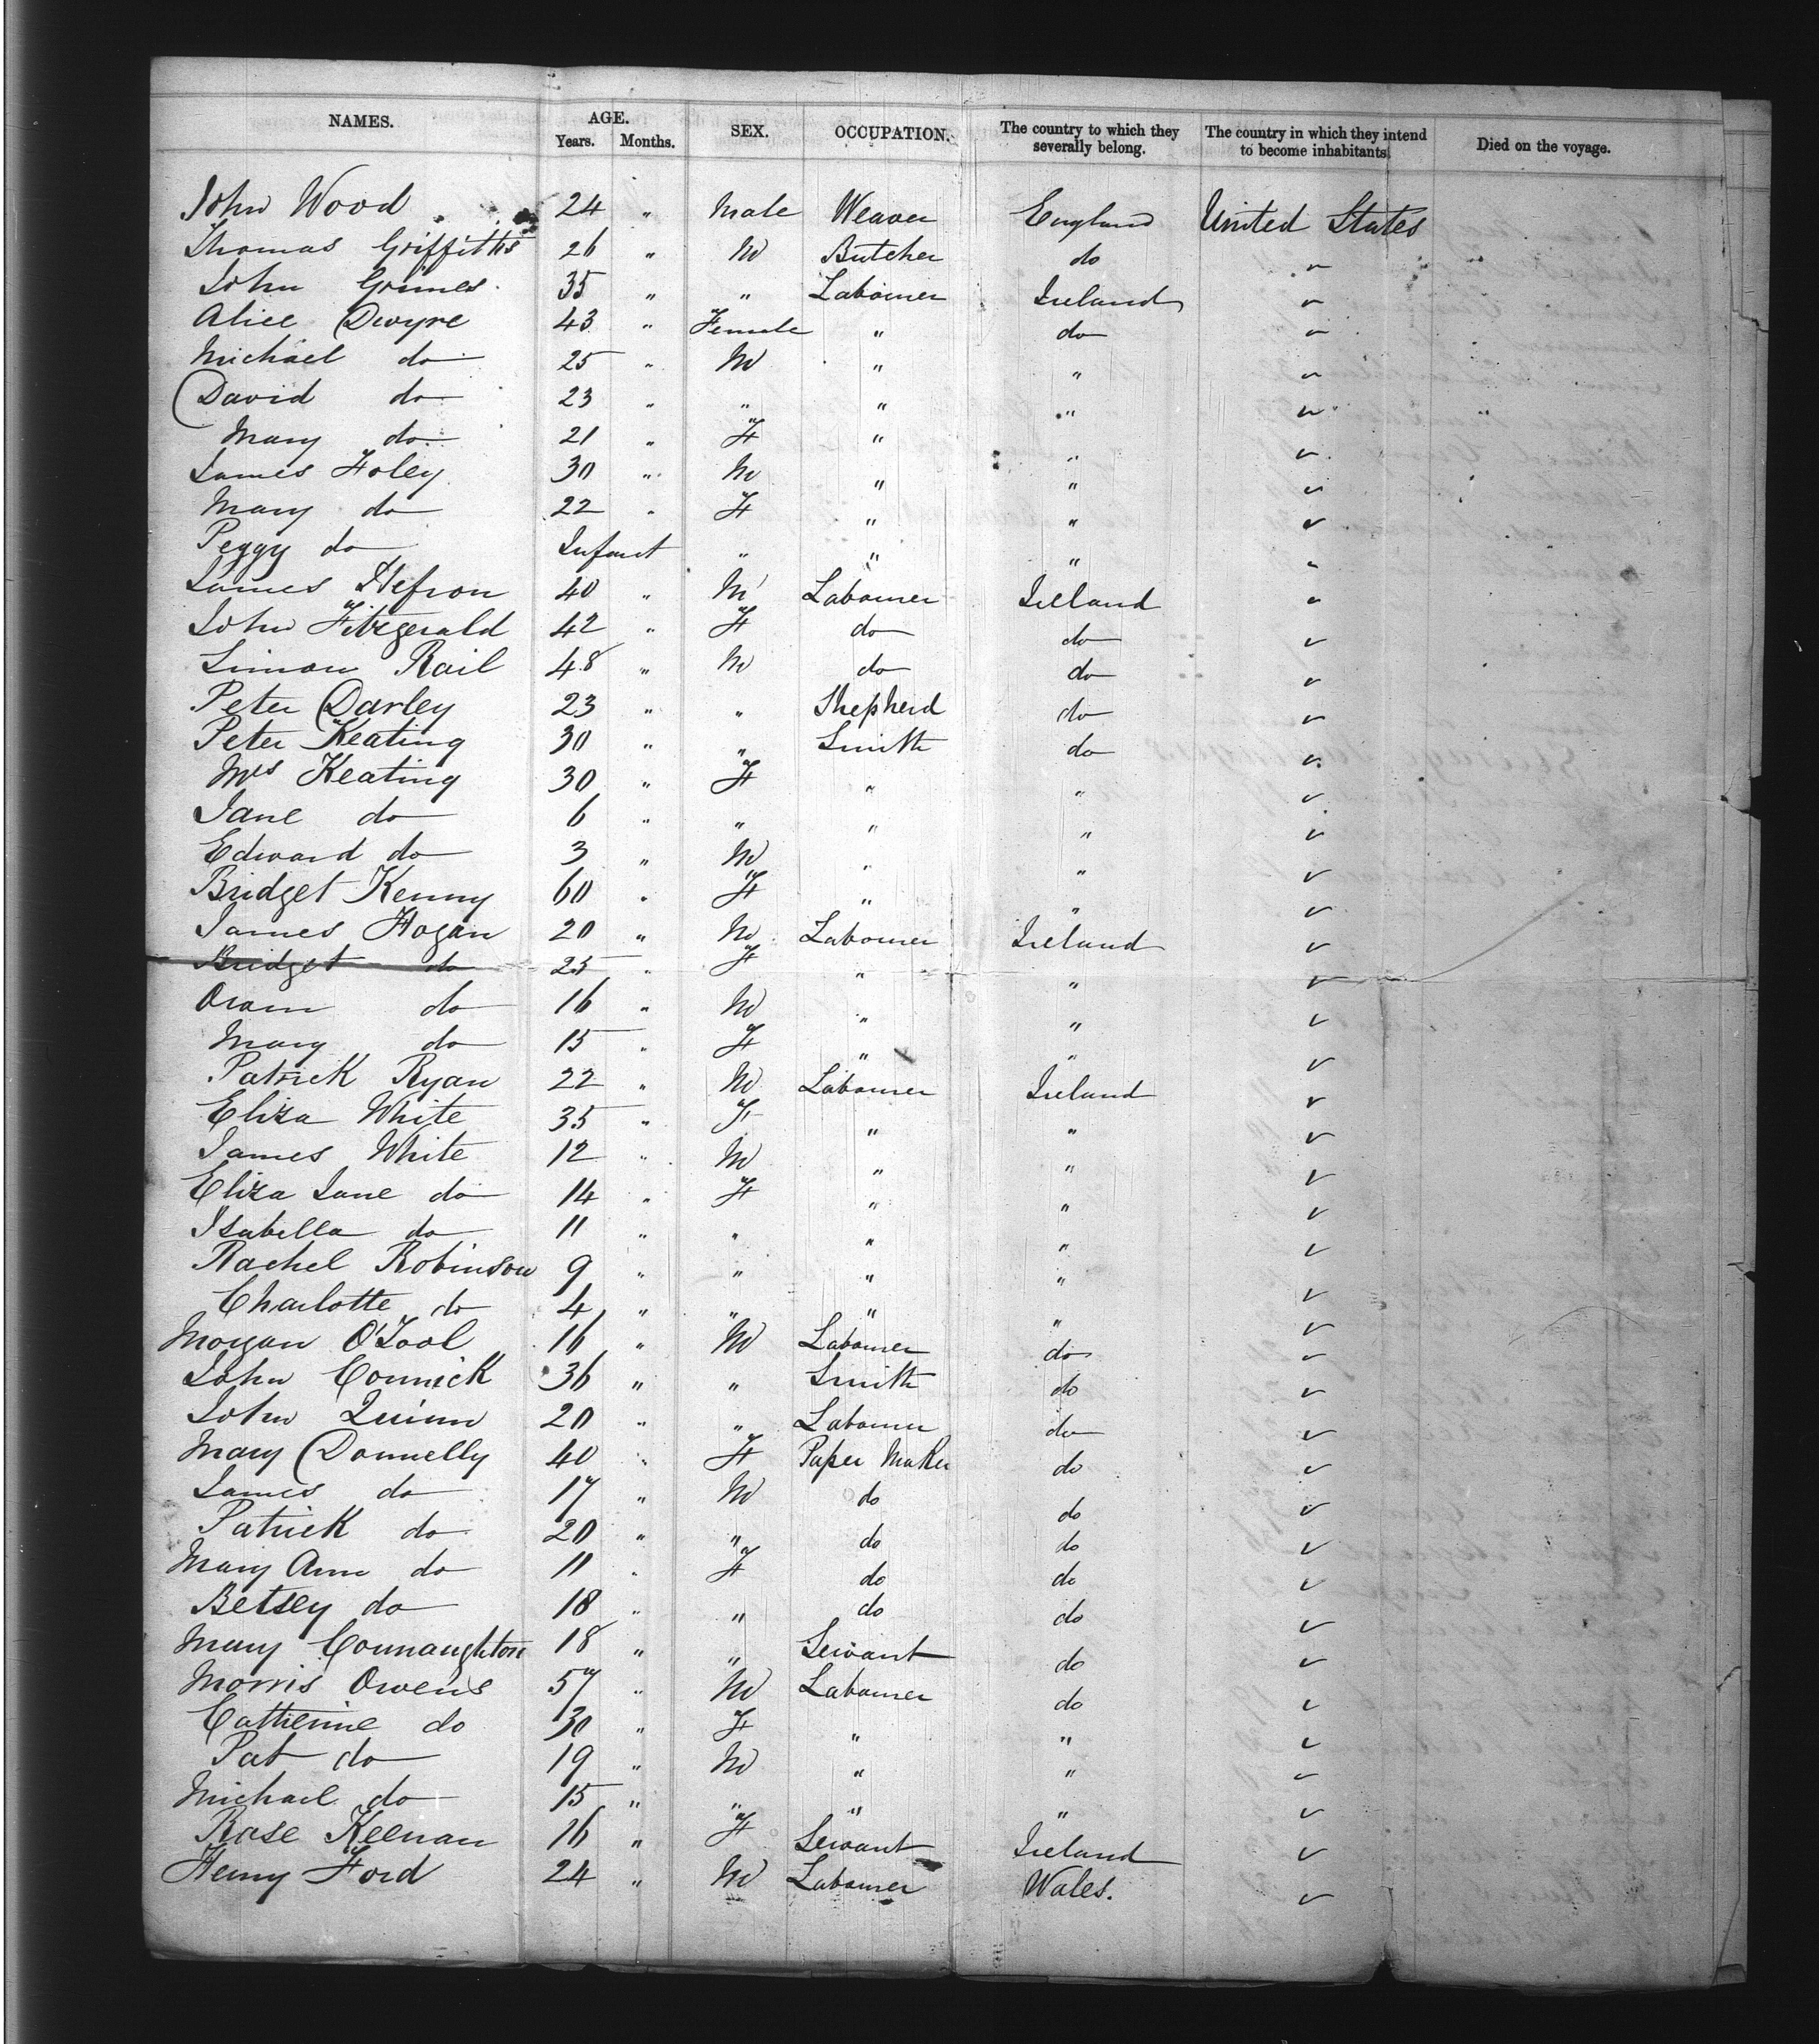 NAMES. AGE. Years. Months. SEX. OCCUPATION. The country to which they severally belong. The country in which they intend to become inhabitants. Died on the voyage.
John Wood 24 " Male Weaver England United States
Thomas Griffiths 26 " M Butcher do "
John Grimes 35 " " Labourer Ireland "
Alice Dwyre 43 " Female " do "
Michael do 25 " M " " "
David do 23 " " " " "
Mary do 21 " F " " "
James Foley 30 " M " " "
Mary do 22 " F " " "
Peggy do Infant " " " "
James Hefron 40 " M Labourer Ireland "
John Fitzgerald 42 " F do do "
Simon Rail 48 " M do do "
Peter Darley 23 " " Shepherd do "
Peter Keating 30 " " Smith do "
Mrs Keating 30 " F " " "
Jane do 6 " " " " "
Edward do 3 " M " " "
Bridget Kenny 60 " F " " "
James Hogan 20 " M Labourer Ireland "
Bridget do 25 " F " " "
Oram do 16 " M " " "
Mary do 15 " F " " "
Patrick Ryan 22 " M Labourer Ireland "
Eliza White 35 " F " " "
James White 12 " M " " "
Eliza Jane do 14 " F " " "
Isabella do 11 " " " " "
Rachel Robinson 9 " " " " "
Charlotte do 4 " " " " "
Morgan O'Tool 16 " M Labourer do "
John Connick 36 " " Smith do "
John Quinn 20 " " Labourer do "
Mary Donnelly 40 " F Paper Maker do "
James do 17 " M do do "
Patrick do 20 " " do do "
Mary Ann do 11 " F do do "
Betsey do 18 " " do do "
Mary Connaughton 18 " " Servant do "
Morris Owens 57 " M Labourer do "
Catherine do 30 " F " " "
Pat do 19 " M " " "
Michael do 15 " " " " "
Rose Keenan 16 " F Servant Ireland "
Henry Ford 24 " M Labourer Wales. "